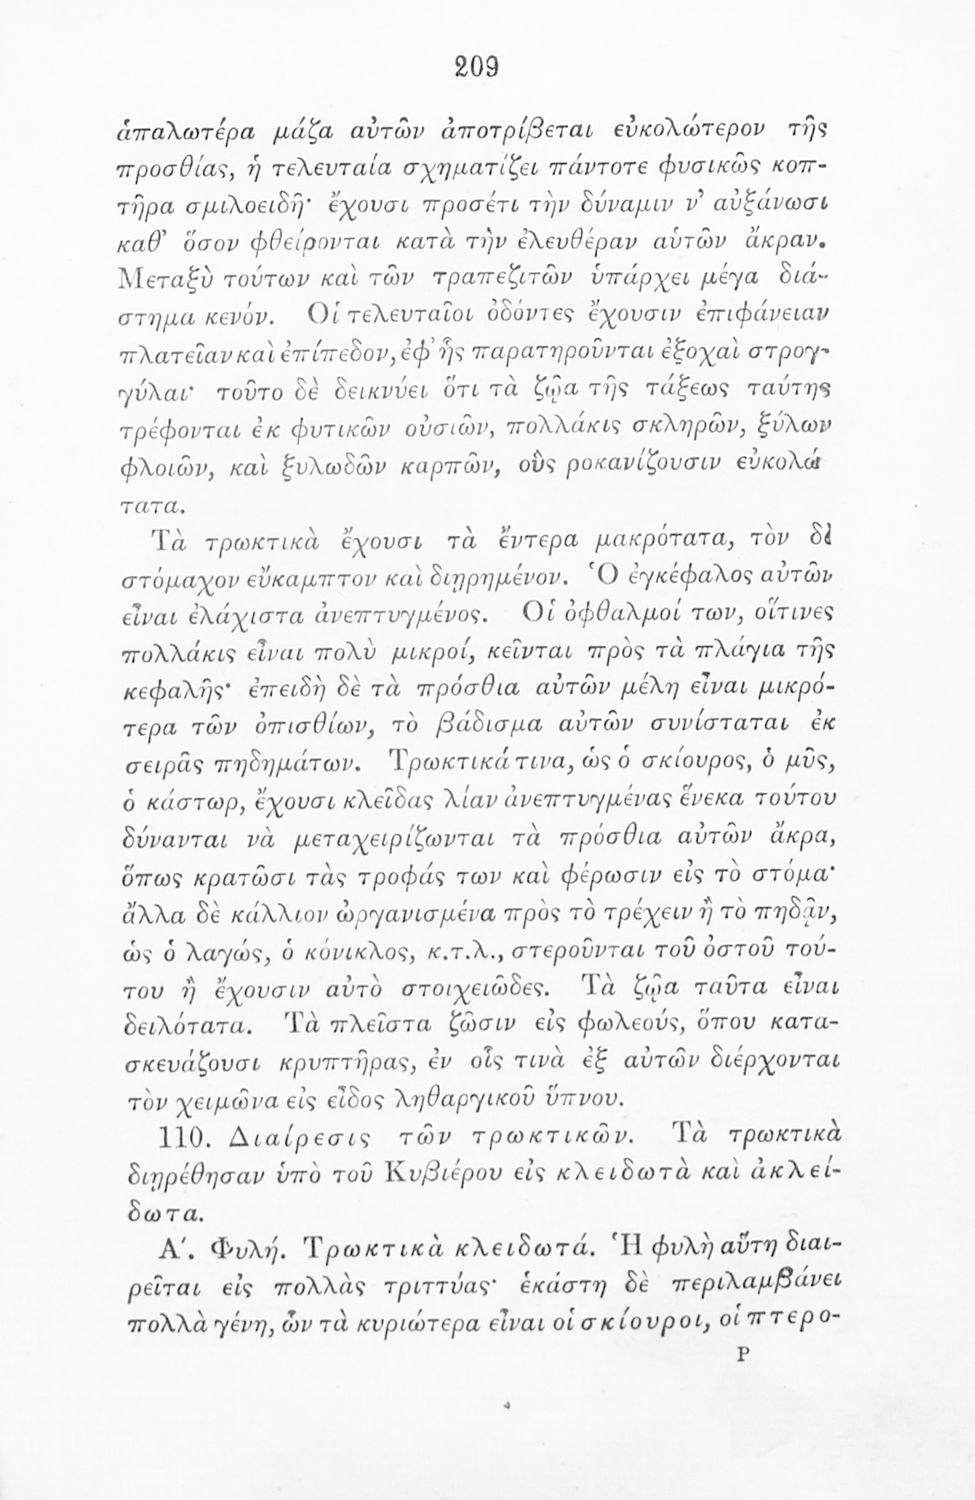 209
ἁπαλωτέρα μάζα αὐτῶν ἀποτρίβεται εὐκολώτερον τῆς
προσθίας, ἡ τελευταία σχηματίζει πάντοτε φυσικῶς κοπ-
τῆρα σμιλοειδῆ· ἔχουσι προσέτι τὴν δύναμιν ν’ αὐξάνωσι
καθ’ ὅσον φθείρονται κατὰ τὴν ἐλευθέραν αὑτῶν ἄκραν.
Μεταξὺ τούτων καὶ τῶν τραπεζιτῶν ὑπάρχει μέγα διά-
στημα κενόν. Οἱ τελευταῖοι ὀδόντες ἔχουσιν ἐπιφάνειαν
πλατεῖαν καὶ ἐπίπεδον, ἐφ’ ἧς παρατηροῦνται ἐξοχαὶ στρογ-
γύλαι· τοῦτο δὲ δεικνύει ὅτι τὰ ζῷα τῆς τάξεως ταύτης
τρέφονται ἐκ φυτικῶν οὐσιῶν, πολλάκις σκληρῶν, ξύλων
φλοιῶν, καὶ ξυλωδῶν καρπῶν, οὓς ροκανίζουσιν εὐκολώ
τατα.
Τὰ τρωκτικὰ ἔχουσι τὰ ἔντερα μακρότατα, τὸν δὲ
στόμαχον εὔκαμπτον καὶ διῃρημένον. Ὁ ἐγκέφαλος αὐτῶν
εἶναι ἐλάχιστα ἀνεπτυγμένος. Οἱ ὀφθαλμοί των, οἵτινες
πολλάκις εἶναι πολὺ μικροί, κεῖνται πρὸς τὰ πλάγια τῆς
κεφαλῆς· ἐπειδὴ δὲ τὰ πρόσθια αὐτῶν μέλη εἶναι μικρό-
τερα τῶν ὀπισθίων, τὸ βάδισμα αὐτῶν συνίσταται ἐκ
σειρᾶς πηδημάτων. Τρωκτικά τινα, ὡς ὁ σκίουρος, ὁ μῦς,
ὁ κάστωρ, ἔχουσι κλεῖδας λίαν ἀνεπτυγμένας ἕνεκα τούτου
δύνανται νὰ μεταχειρίζωνται τὰ πρόσθια αὐτῶν ἄκρα,
ὅπως κρατῶσι τὰς τροφάς των καὶ φέρωσιν εἰς τὸ στόμα·
ἄλλα δὲ κάλλιον ὠργανισμένα πρὸς τὸ τρέχειν ἢ τὸ πηδᾷν,
ὡς ὁ λαγώς, ὁ κόνικλος, κ.τ.λ., στεροῦνται τοῦ ὀστοῦ τού-
του ἢ ἔχουσιν αὐτὸ στοιχειῶδες. Τὰ ζῷα ταῦτα εἶναι
δειλότατα. Τὰ πλεῖστα ζῶσιν εἰς φωλεούς, ὅπου κατα-
σκευάζουσι κρυπτῆρας, ἐν οἷς τινὰ ἐξ αὐτῶν διέρχονται
τὸν χειμῶνα εἰς εἶδος ληθαργικοῦ ὕπνου.
110. Διαίρεσις τῶν τρωκτικῶν. Τὰ τρωκτικὰ
διῃρέθησαν ὑπὸ τοῦ Κυβιέρου εἰς κλειδωτὰ καὶ ἀκλεί-
δωτα.
Α΄. Φυλή. Τρωκτικὰ κλειδωτά. Ἡ φυλὴ αὕτη διαι-
ρεῖται εἰς πολλὰς τριττύας· ἑκάστη δὲ περιλαμβάνει
πολλὰ γένη, ὧν τὰ κυριώτερα εἶναι οἱ σκίουροι, οἱ πτερο-
P